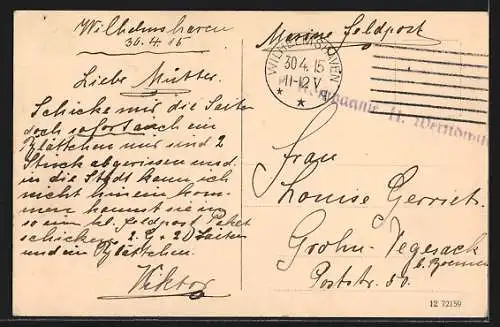 Wilhelmshaven
30.4.15
Liebe Mutter.
Schicke mir die Seiten
doch sofort auch ein
Blättchen mir sind 2
Stück abgerissen und
in die Stadt kann ich
nicht hinein kom-
men kannst sie in
so ein kl. Feldpost Paket
schicken. 2 G + 2 D Saiten
und ein Blättchen.
Viktor
Marine Feldpost
WILHELMSHAVEN
30.4.15
11-12 V.
* * a
Kompagnie II.
Frau
Louise Gerriet.
Grohn-Vegesack
b. Bremen
Poststr. 50.
12 72159